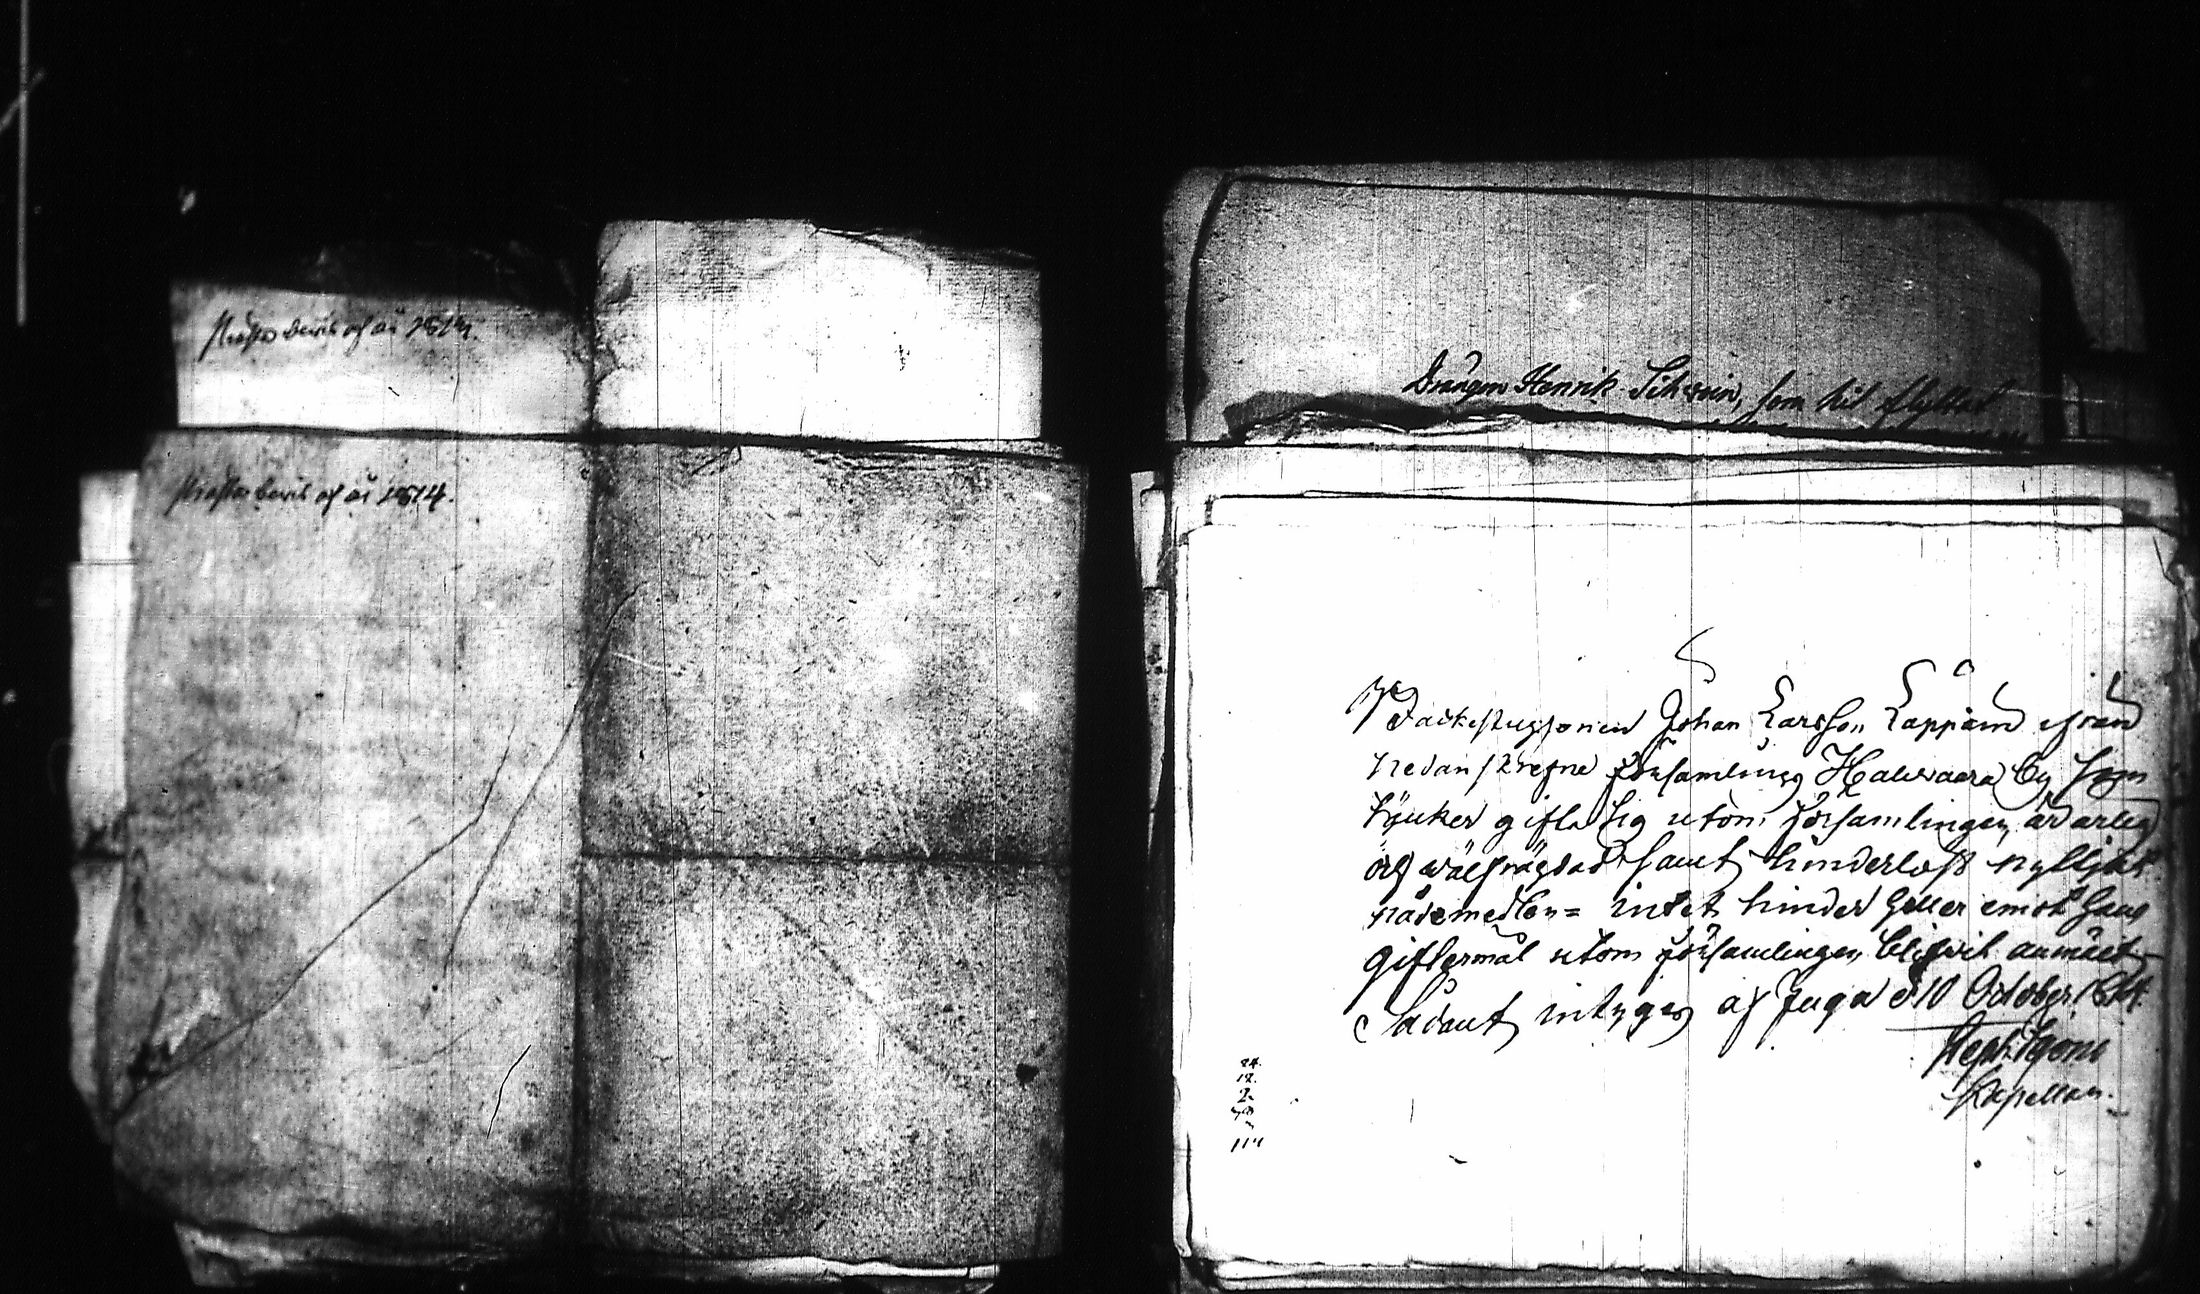 Präste bevis af år 1814.
Präste bevis af år 1814.
Drängen Henrik Sihvoin, som hit flyttat
Backstugsonen Johan Larsson Lappain ifrån
nedanskrefne församling Halivaara by som
tycker gifta sig utom församlingen, är ärlig
och wälfrägdad samt hinderlös nyttjat
nådemedlen= intet hinder heller emot hans
giftermål utom församlingen blifvit anmält
Sådant intygas af Juga d 10 October 1814.
Steph.
Kapellan.
24.
12.
2.
114